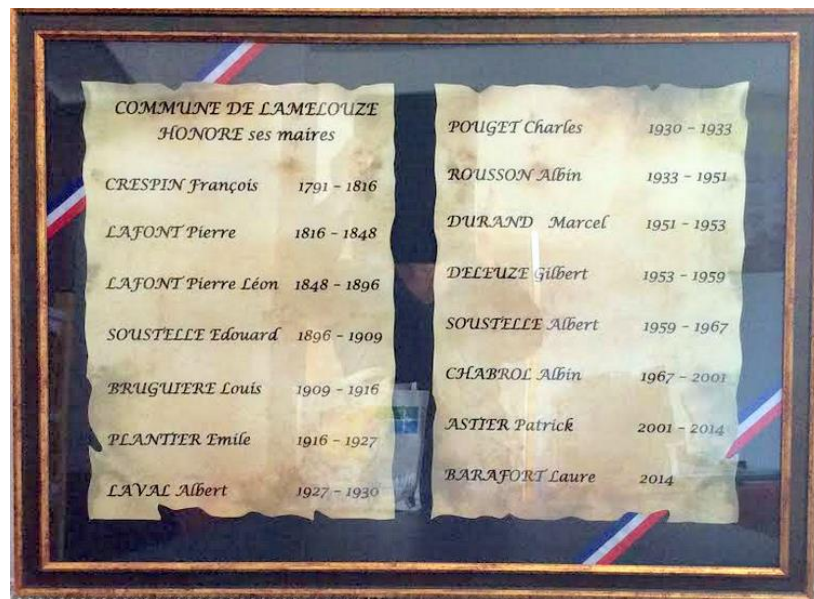 COMMUNE DE LAMELOUZE
HONORE ses maires
CRESPIN François 1791 - 1816
LAFONT Pierre 1816 - 1848
LAFONT Pierre Léon 1848 - 1896
SOUSTELLE Edouard 1896 - 1909
BRUGUIERE Louis 1909 - 1916
PLANTIER Emile 1916 - 1927
LAVAL Albert 1927 - 1930
POUGET Charles 1930 - 1933
ROUSSON Albin 1933 - 1951
DURAND Marcel 1951 - 1953
DELEUZE Gilbert 1953 - 1959
SOUSTELLE Albert 1959 - 1967
CHABROL Albin 1967 - 2001
ASTIER Patrick 2001 - 2014
BARAFORT Laure 2014